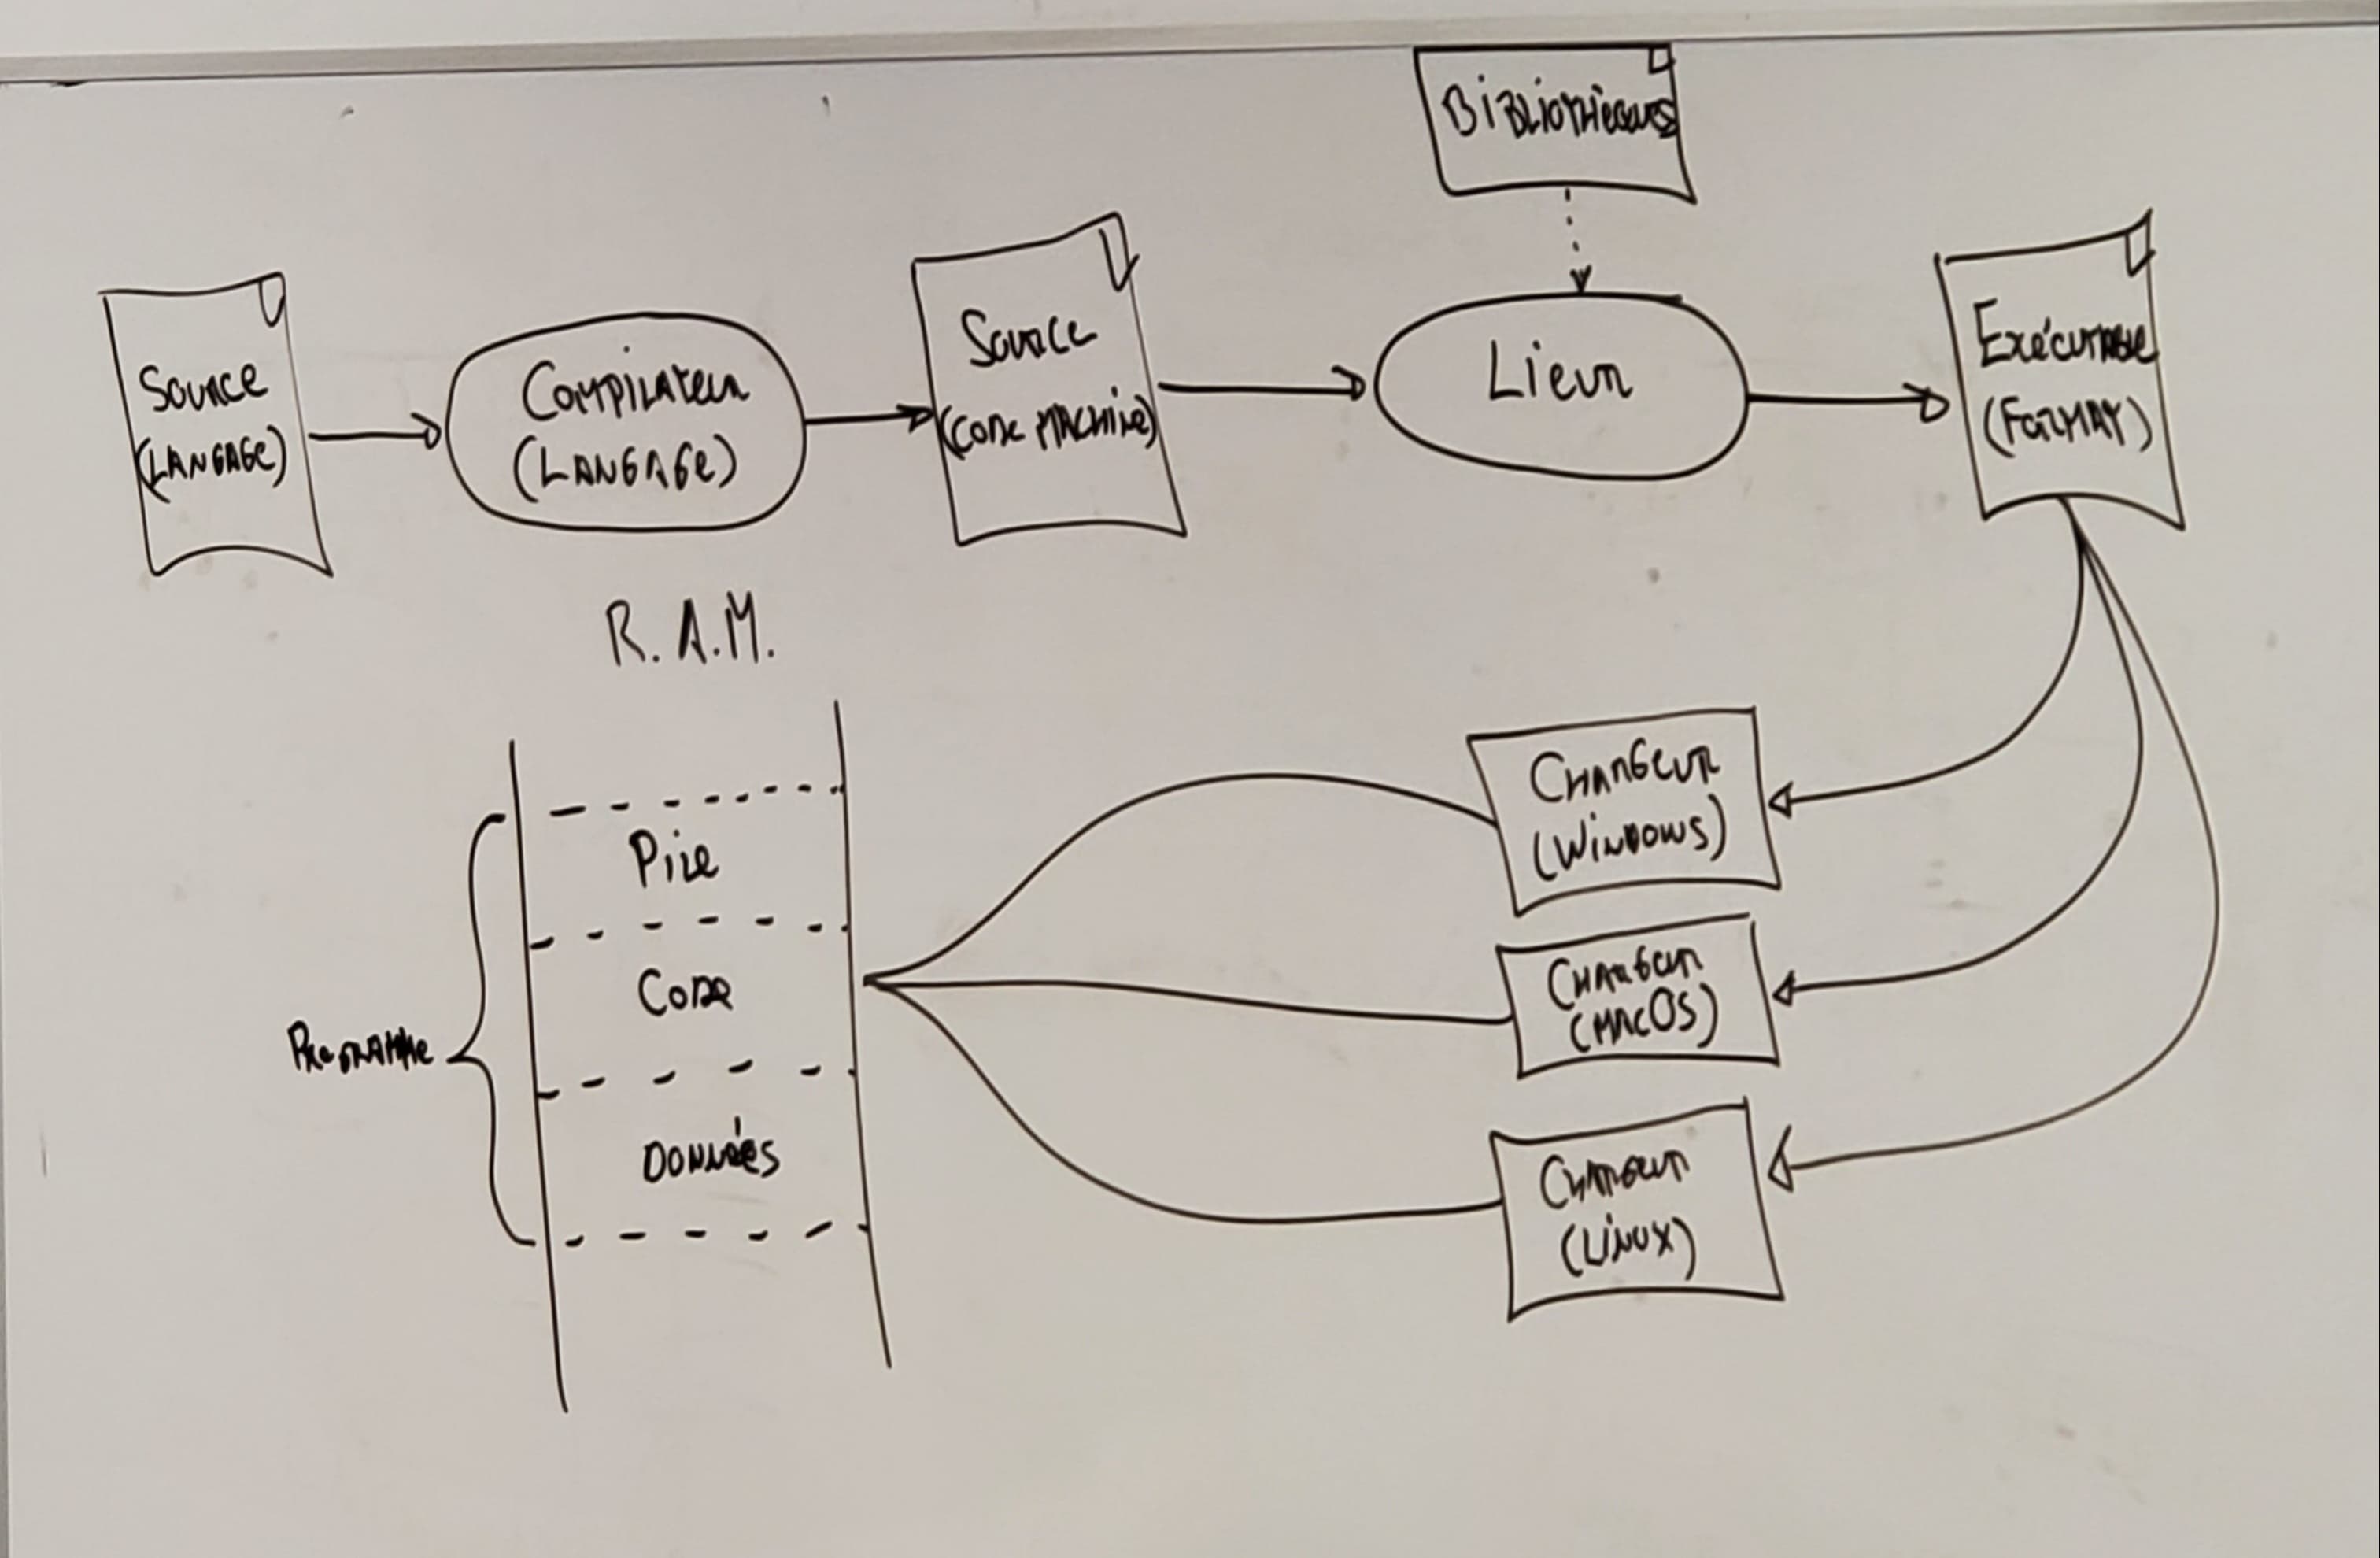 Bibliothèques
Source
(Langage)
Compilateur
(Langage)
Source
(Code machine)
Lieur
Exécutable
(Format)
R.A.M.
Pile
Code
Données
Programme
Chargeur
(Windows)
Chargeur
(MacOS)
Chargeur
(Linux)